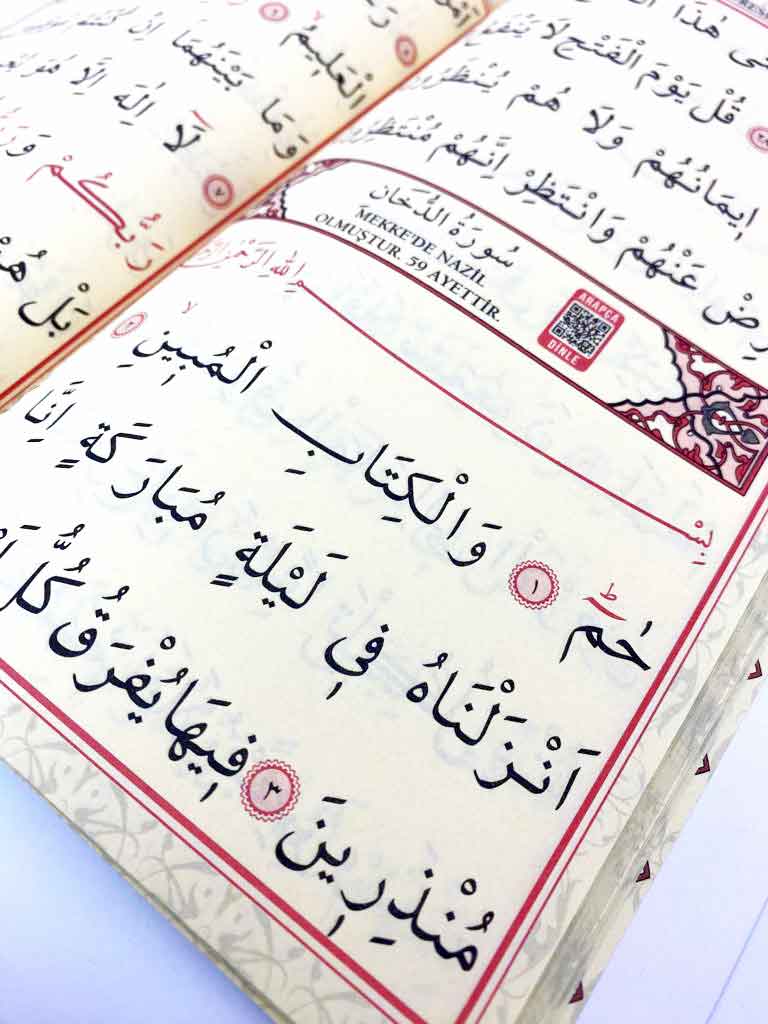 هٰذَا
قُلْ يَوْمَ الْفَتْحِ لَا يَنْفَعُ
اِيمَانُهُمْ وَلَا هُمْ يُنْظَرُونَ
عَنْهُمْ وَانْتَظِرْ اِنَّهُمْ مُنْتَظِرُونَ
سُورَةُ الدُّخَانِ
MEKKE'DE NAZİL
OLMUŞTUR. 59 AYETTİR.
ARAPÇA
DİNLE
بِسْمِ اللّٰهِ الرَّحْمٰنِ
حٰمٓ ١ وَالْكِتَابِ الْمُبِينِ ٢
اَنْزَلْنَاهُ فِي لَيْلَةٍ مُبَارَكَةٍ اِنَّا
مُنْذِرِينَ ٣ فِيهَا يُفْرَقُ كُلُّ
الْعَلِيمُ ٦
وَمَا بَيْنَهُمَا اِنْ كُنْتُمْ
لَا اِلٰهَ اِلَّا هُوَ
٧
رَبُّكُمْ
بَلْ هُمْ